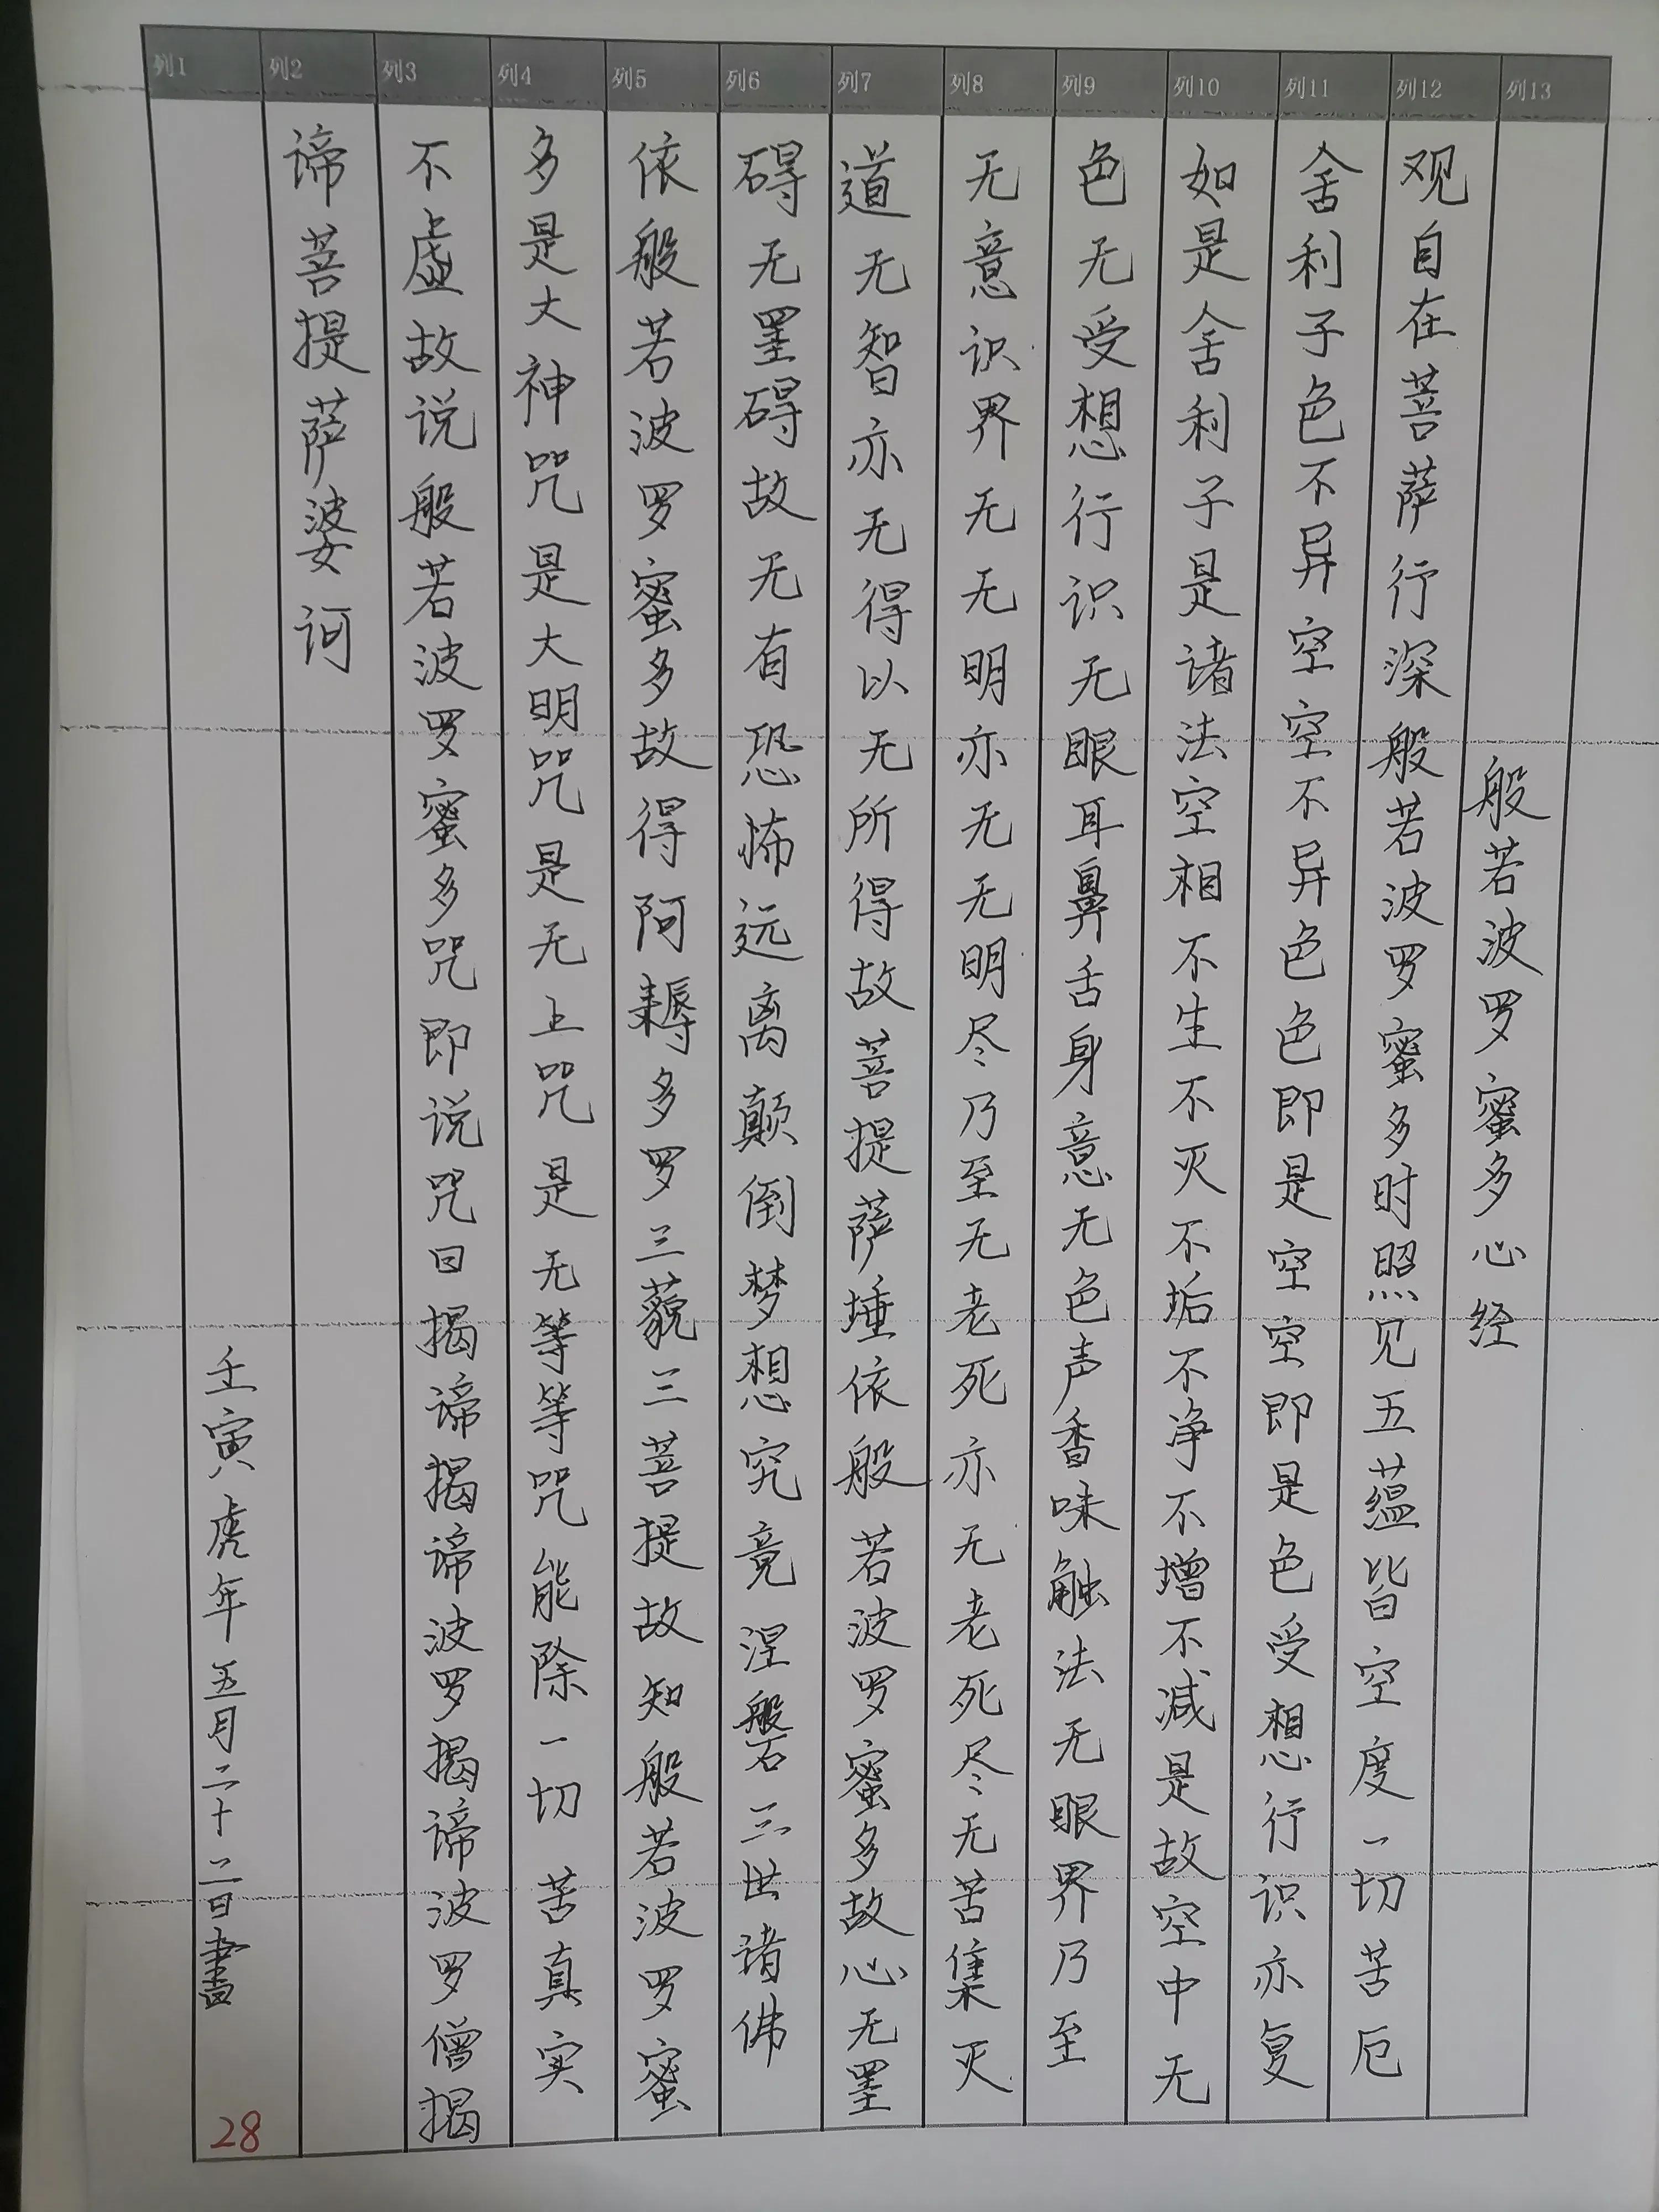 列1 列2 列3 列4 列5 列6 列7 列8 列9 列10 列11 列12 列13
般若波罗蜜多心经
观自在菩萨行深般若波罗蜜多时照见五蕴皆空度一切苦厄
舍利子色不异空空不异色色即是空空即是色受想行识亦复
如是舍利子是诸法空相不生不灭不垢不净不增不减是故空中无
色无受想行识无眼耳鼻舌身意无色声香味触法无眼界乃至
无意识界无无明亦无无明尽乃至无老死亦无老死尽无苦集灭
道无智亦无得以无所得故菩提萨埵依般若波罗蜜多故心无罣
碍无罣碍故无有恐怖远离颠倒梦想究竟涅磐三世诸佛
依般若波罗蜜多故得阿耨多罗三藐三菩提故知般若波罗蜜
多是大神咒是大明咒是无上咒是无等等咒能除一切苦真实
不虚故说般若波罗蜜多咒即说咒曰揭谛揭谛波罗揭谛波罗僧揭
谛菩提萨婆诃
壬寅虎年五月二十二日書
28